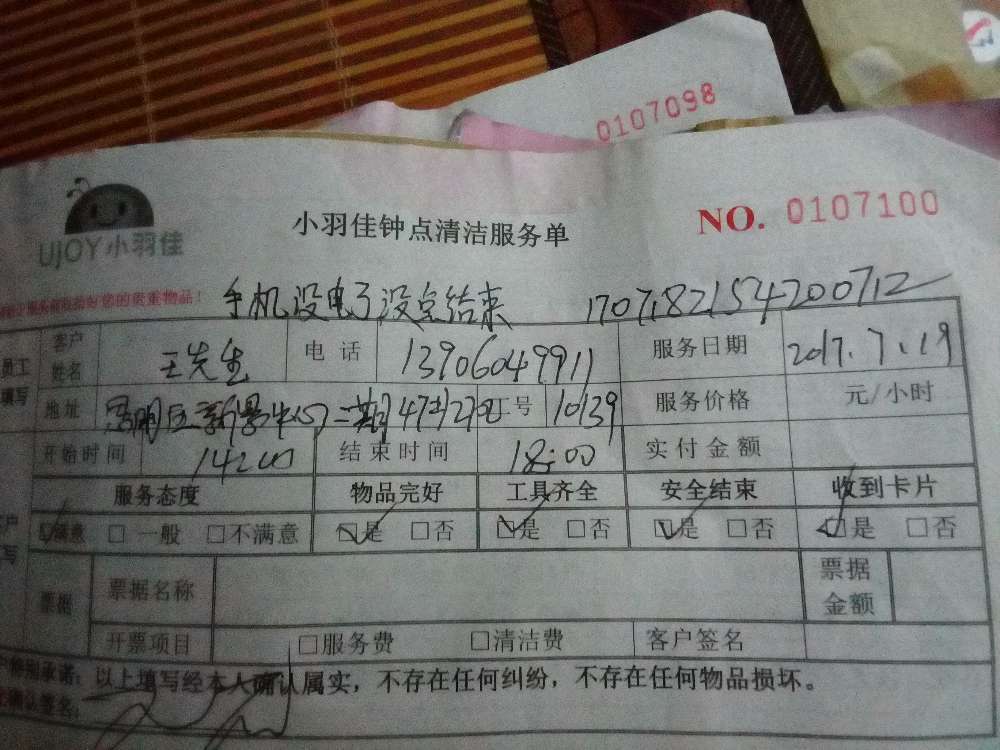 0107098
UJOY小羽佳
小羽佳钟点清洁服务单
NO. 0107100
的贵重物品！
手机没电了没点结束 1707182154200712
员工填写
客户姓名 王先生 电话 13906049911 服务日期 2017.7.19
地址 二期47 号 10139 服务价格 元/小时
开始时间 14:00 结束时间 18:00 实付金额
服务态度 物品完好 工具齐全 安全结束 收到卡片
☑满意 □一般 □不满意 ☑是 □否 ☑是 □否 ☑是 □否 ☑是 □否
票据 票据名称 票据金额
开票项目 □服务费 □清洁费 客户签名
特别承诺：以上填写经本人确认属实，不存在任何纠纷，不存在任何物品损坏。
确认签名：